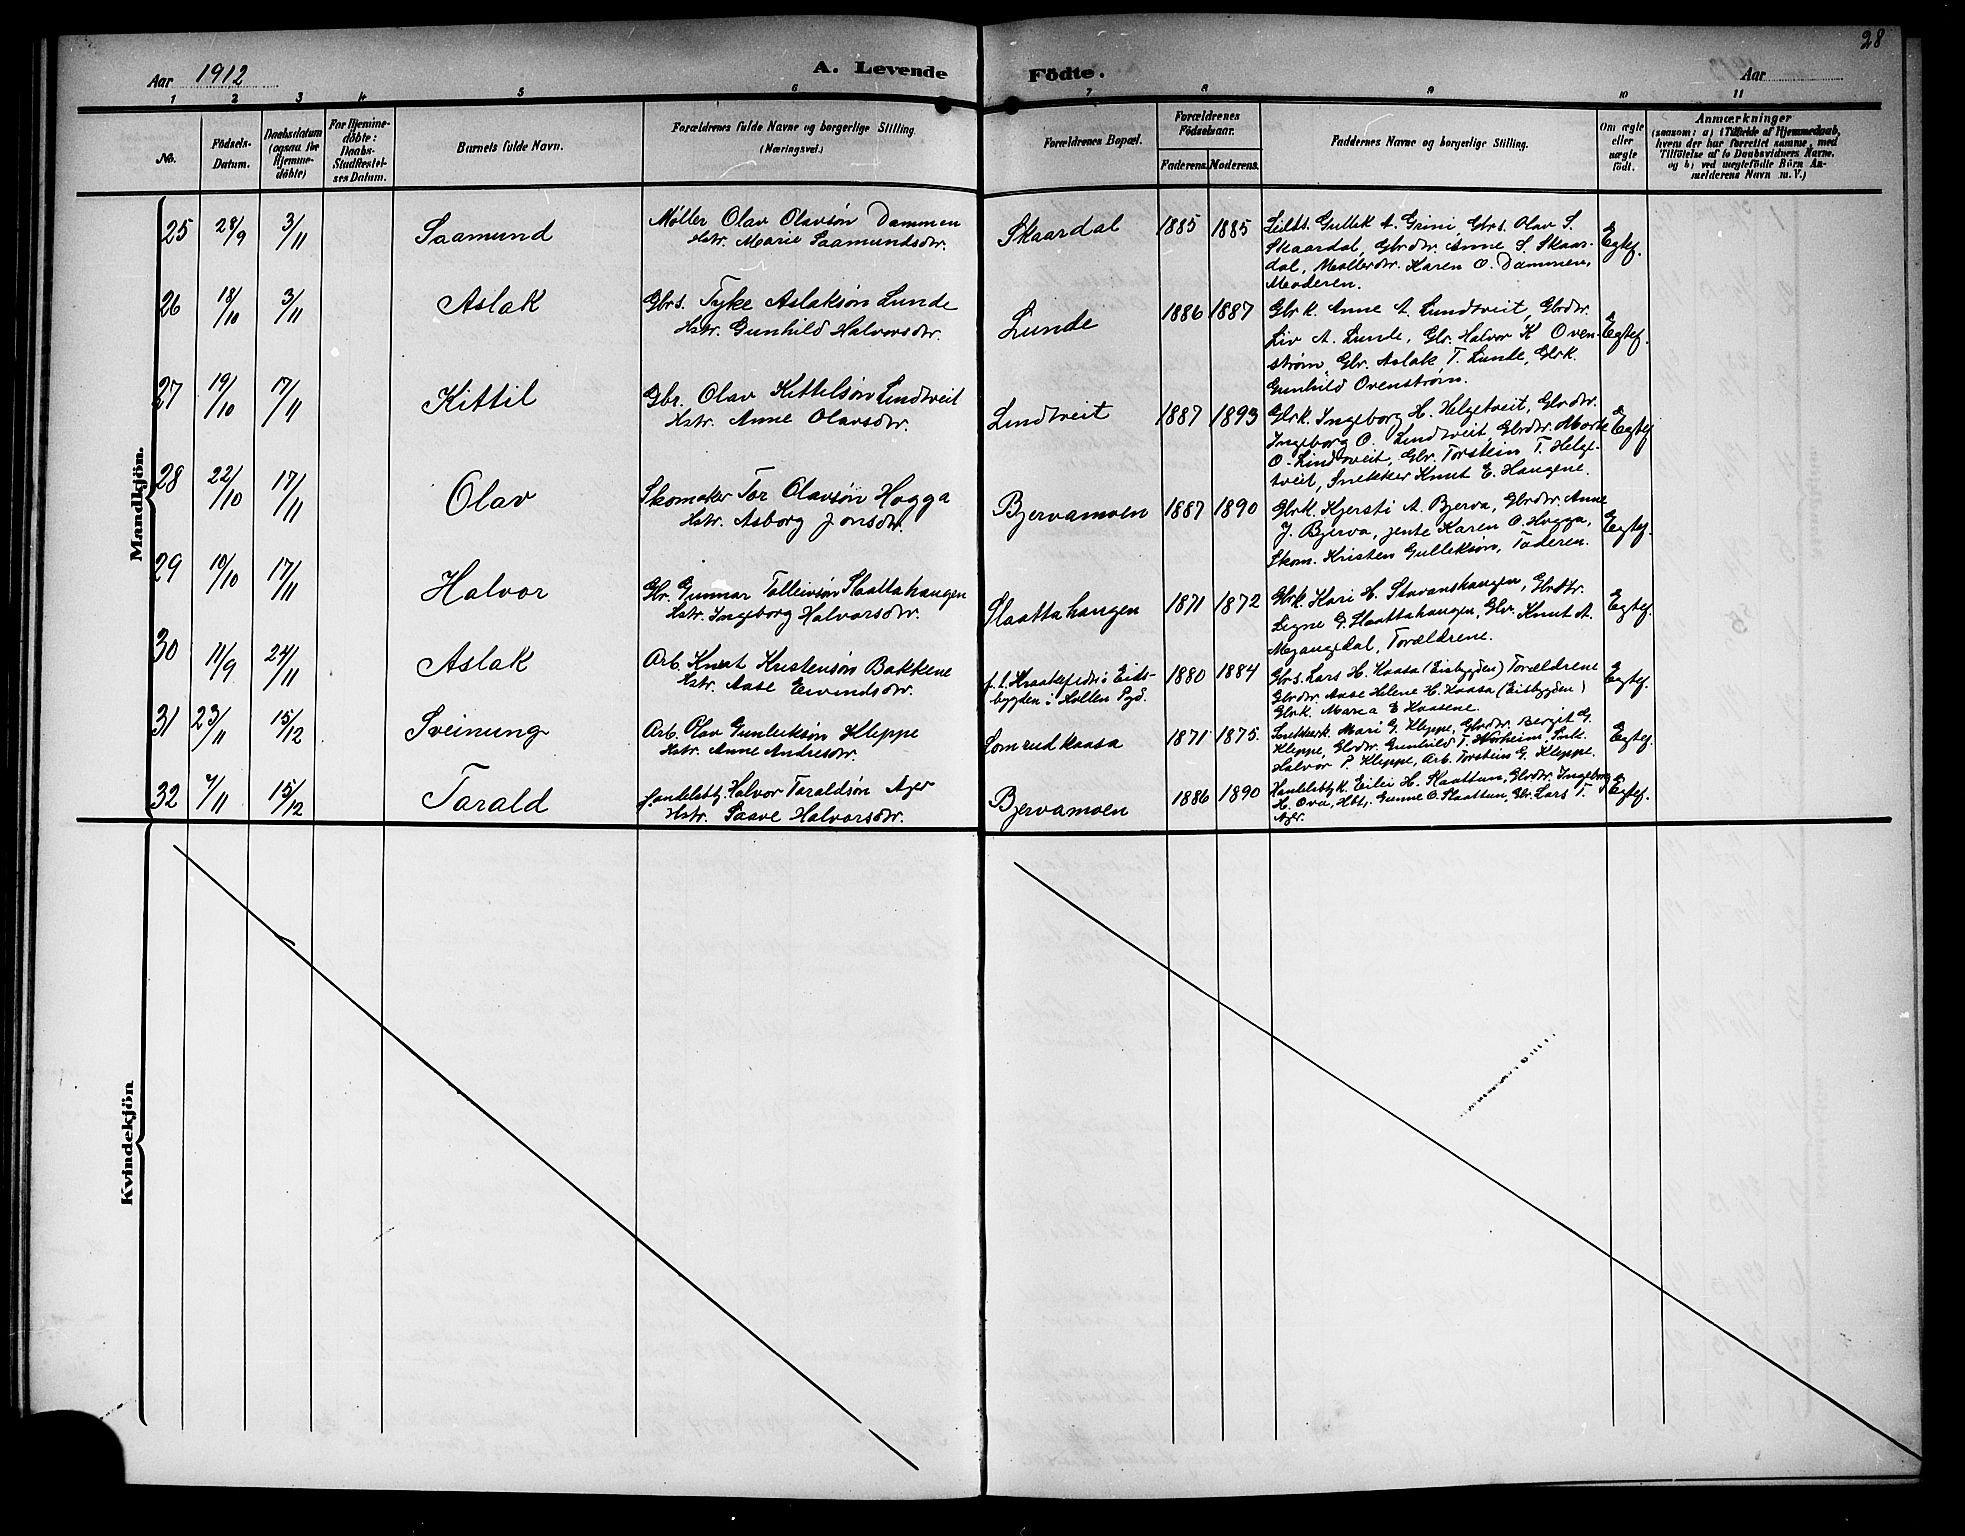 28
Aar 1912
A. Levende
Födte.
Aar
1 2 3 4 5 6 7 8 9 10 11
No.
Födsels-
Datum.
Daabsdatum
(ogsaa for
Hjemme-
döbte)
For Hjemme-
döbte:
Daabs-
Stadfestel-
ses Datum.
Barnets fulde Navn.
Forældrenes fulde Navne og borgerlige Stilling.
(Næringsvei.)
Forældrenes Bopæl.
Forældrenes
Födselsaar.
Faderens. Moderens.
Faddernes Navne og borgerlige Stilling.
Om ægte
eller
uægte
födt.
Anmærkninger
(saasom: a) i Tilfælde af Hjemmedaab,
hvem der har forrettet samme, med
Tilföielse af to Daabsvidners Navne,
og b) ved uægtefödte Börn An-
melderens Navn m. V.)
Mandkjön.
25 28/9 3/11 Saamund
Møller Olav Olavsøn Dammen
Hstr. Marie Saamundsdtr.
Skaardal 1885 1885
Gullek A. Grini, Gbrs. Olav S.
Skaardal, Gbrdtr. Anne S. Skaar-
dal, Møllerdtr. Karen O. Dammen,
Moderen.
Egtef.
26 18/10 3/11 Aslak
Gbrs. Tyke Aslaksøn Lunde
Hstr. Gunhild Halvorsdtr.
Lunde 1886 1887
Gbrk. Anne A. Lundtveit, Gbrdtr.
Liv A. Lunde, Gbr. Halvor K. Oven-
strøm, Gbr. Aslak T. Lunde, Gbrk.
Gunhild Ovenstrøm.
Egtef.
27 19/10 17/11 Kittil
Gbr. Olav Kittilsøn Lindtveit
Hstr. Anne Olavsdtr.
Lindtveit 1887 1893
Gbrk. Ingeborg H. Helgetveit, Gbrdtr.
Ingeborg O. Lindtveit, Gbrdtr. Marte
O. Lindtveit, Gbr. Torstein T. Helge-
tveit, Snekker Knut E. Haugene.
Egtef.
28 22/10 17/11 Olav
Skomaker Tor Olavsøn Hogga
Hstr. Asborg Jonsdtr.
Bjervamoen 1887 1890
Gbrk. Kjersti A. Bjerva, Gbrdtr. Anne
J. Bjerva, jente Karen O. Hogga,
Skom. Kristen Gulleksøn, Faderen.
Egtef.
29 10/10 17/11 Halvor
Gbr. Gunnar Tolleivsøn Slaattahaugen
Hstr. Ingeborg Halvorsdtr.
Slaattahaugen 1871 1872
Gbrk. Kari H. Stavanshaugen, Gbrdtr.
Signe G. Slaattahaugen, Gbr. Knut A.
Mjaugedal, Forældrene.
Egtef.
30 11/9 24/11 Aslak
Arb. Knut Kristensøn Bakkene
Hstr. Aase Eivindsdtr.
f. t. i Eids-
bygden i Hollen Pgd.
1880 1884
Gbrs. Lars H. Kaasa (Eisbygden) Forældrene
Gbrdtr. Aase Helene H. Kaasa (Eisbygden)
Gbrk. Maren E. Kaasene.
Egtef.
31 23/11 15/12 Sveinung
Arb. Olav Gunleiksøn Kleppe
Hstr. Anne Andresdtr.
Somrudkaasa 1871 1875.
Snekkerk. Mari G. Kleppe, Gbrdtr. Bergit G.
Kleppe, Gbrdtr. Gunhild T. Norheim, Snk.
Halvor P. Kleppe, Arb. Torstein G. Kleppe.
Egtef.
32 7/11 15/12 Tarald
Handelsbtj. Halvor Taraldsøn Ajer
Hstr. Saave Halvorsdtr.
Bjervamoen 1886 1890
Handelsbtj.k. Eilei H. Slaattun, Gbrdtr. Ingeborg
H. Ova, Hbtj. Gunne O. Slaattun, Gbr. Lars T.
Ajer.
Egtef.
Kvindekjön